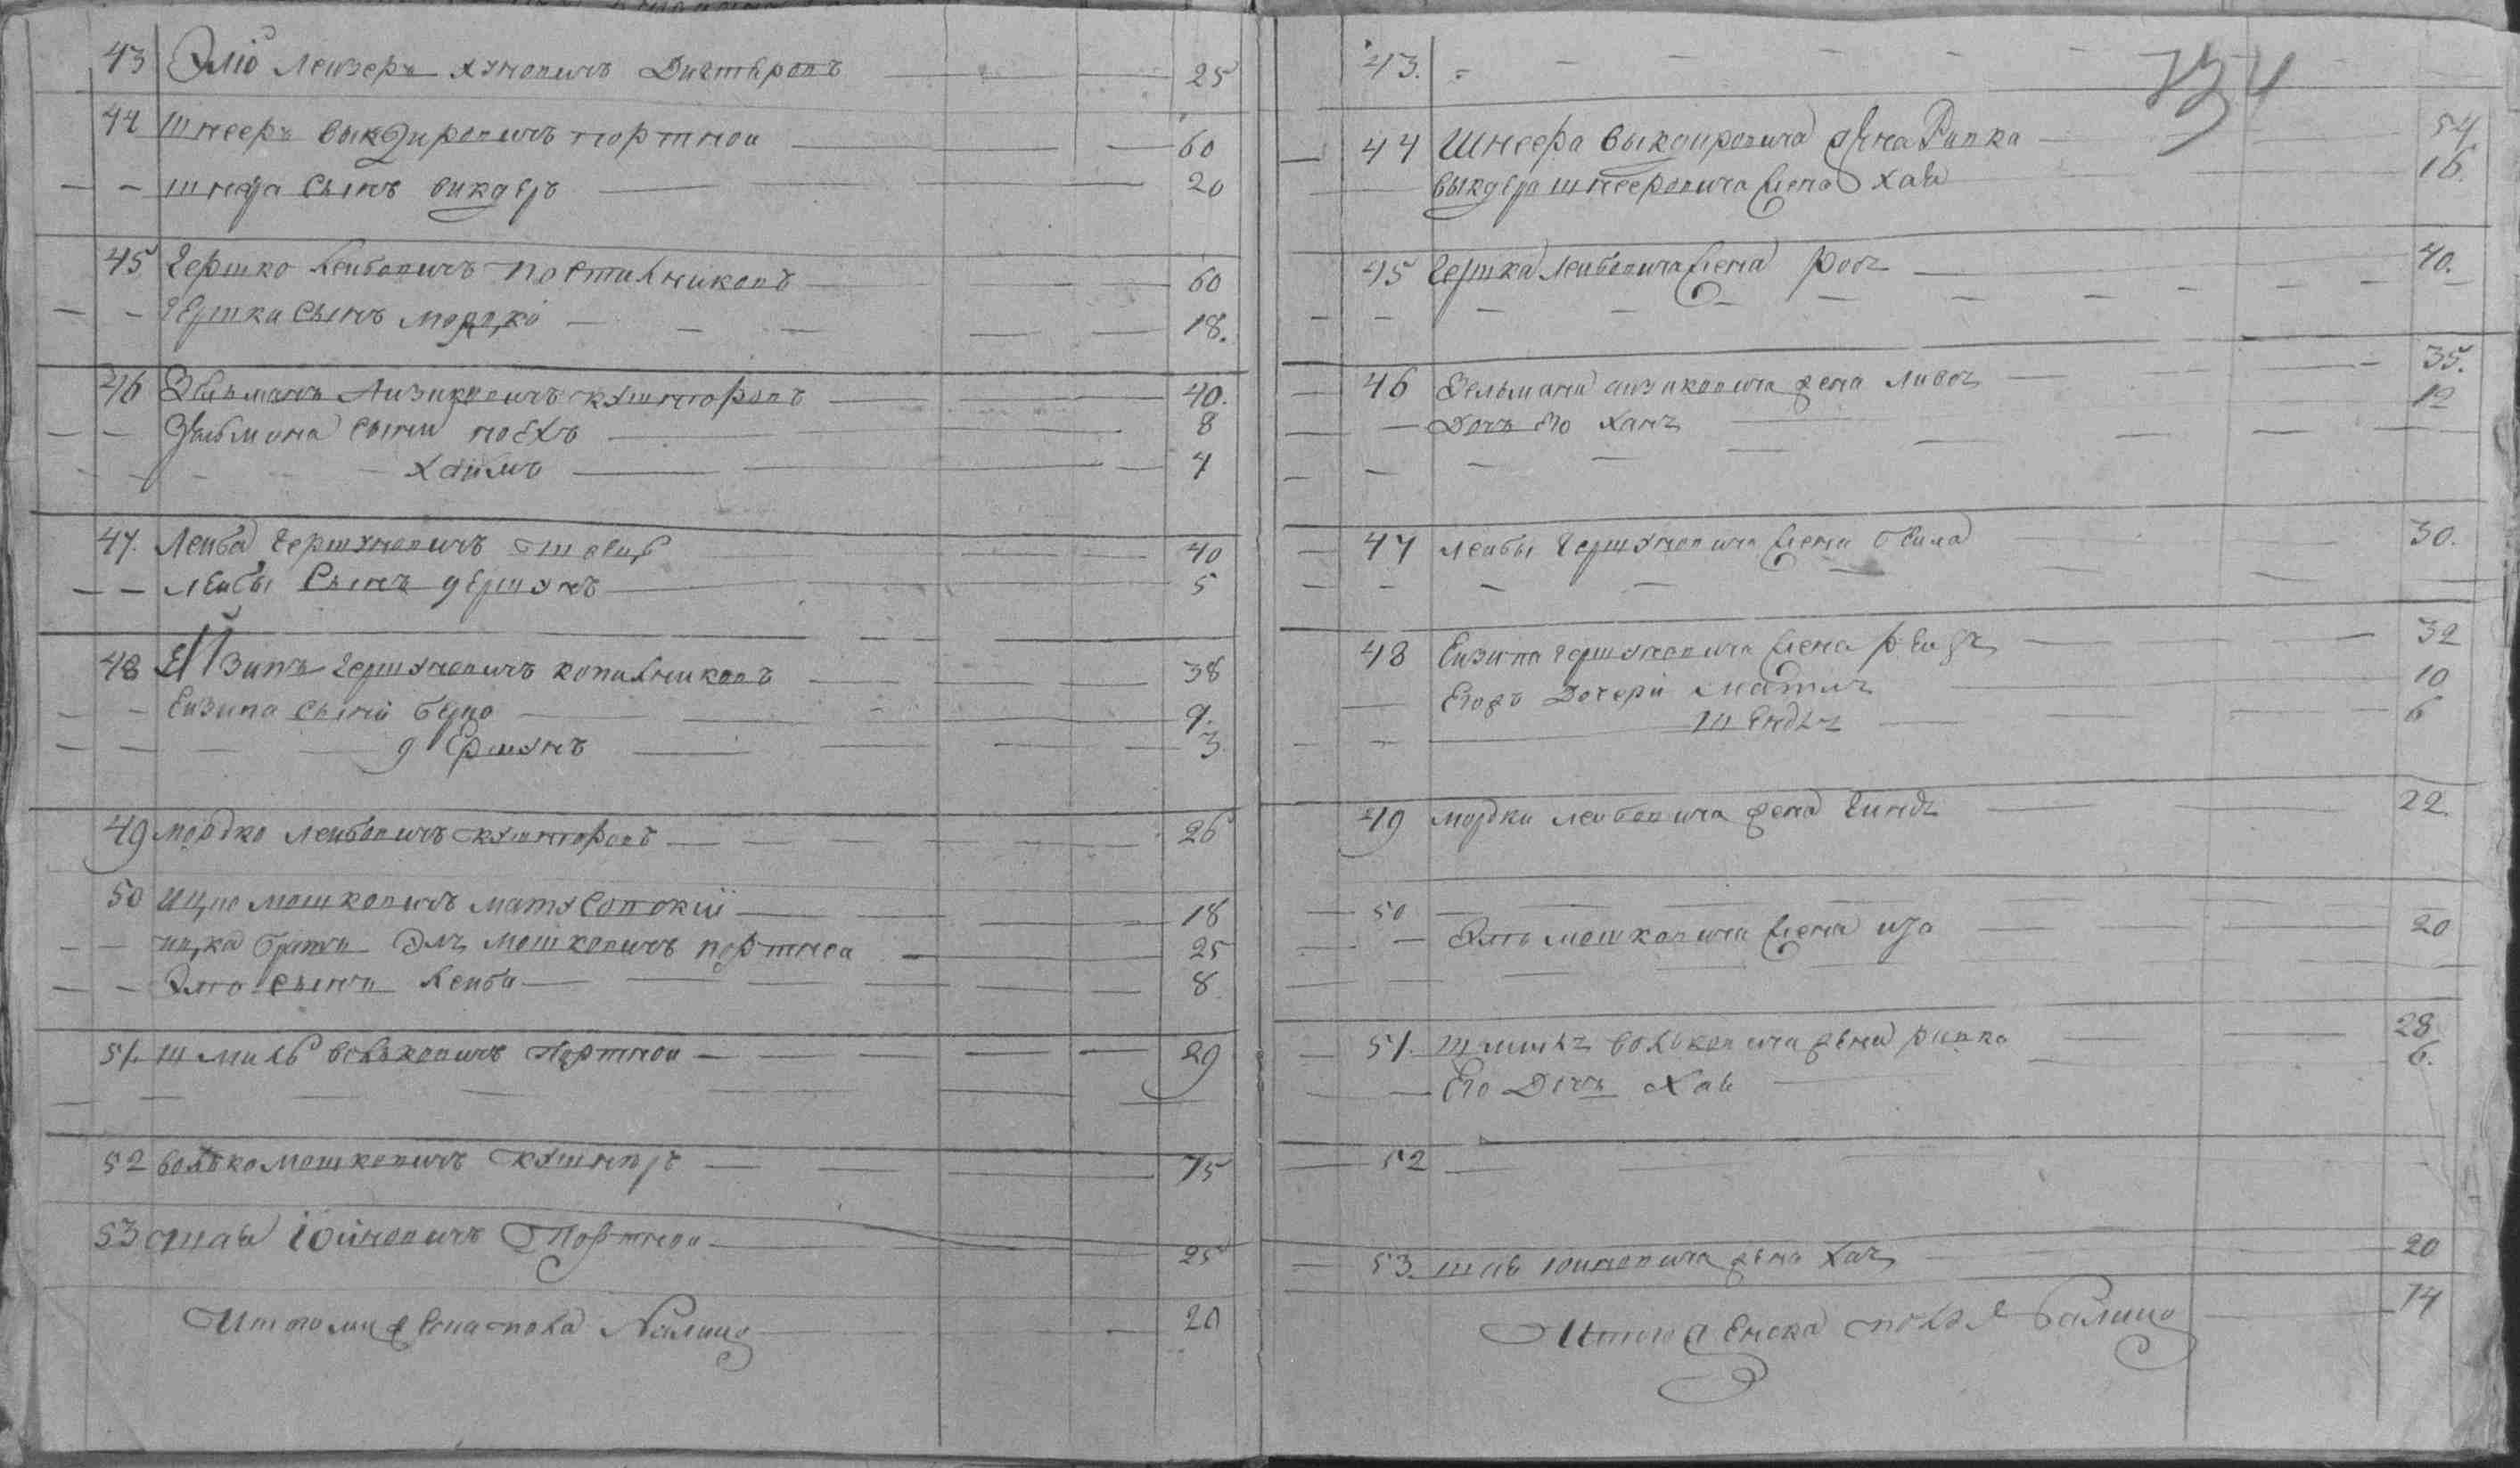 43 Элiо Леизеръ Хуновичъ Дихтяровъ 25
44 Шнееръ Выкдировичъ портнои 60
— — Шнера Сынъ Викдеръ 20
45 Гершко Леибовичъ Постилниковъ 60
— — Гершки Сынъ Мордко 18.
46 Зельманъ Аизиковичъ Кушнеровъ 40.
— — Зельмана Сыны Ноехъ 8
Хаимъ 4
47. Леиба Гершуновичъ 40
— — Леибы Сынъ Гершунъ 5
48 Еизипъ Гершуновичъ Копилниковъ 38
— — Еизипа Сыни Берко 9.
— — Гершунъ 3
49 Мордко Леибовичъ Кушнеровъ 26
50 Ицко Мошковичъ Матусовскiй 18
— — Ицка братъ Эль Мошковичъ портнеи 25
— — Элю Сынъ Леиба 8
51. Шмиль Волковичъ Портнои 29
52 Волко Мошковичъ Кушнеръ 75
53 Шаи Iойновичъ Портнои 25
Итого мужеска пола Налицо 20
43.
44 Шнеера Выкдировича жена Ривка 54
Выкдера Шнееровича жена Хая 16.
45 Гершка Леибовича жена 40.
46 Зельмана Аизиковича жена 35.
Дочь Его Ханъ 12
47 Леибы Гершуновича жена Беила 30.
48 Еизипа Гершуновича жена Реизъ 32
Егожъ Дочери Матлъ 10
Шендль 6
49 Мордки Леибовича жена Гиндъ 22.
50
— Эль Мошковича жена 20
51. Шмиль Волковича жена Ривка 28
— Его Дочь Хая 6.
52
53. Шаи Юиновича жена Хаъ 20
Итого женска пола Налицо 14